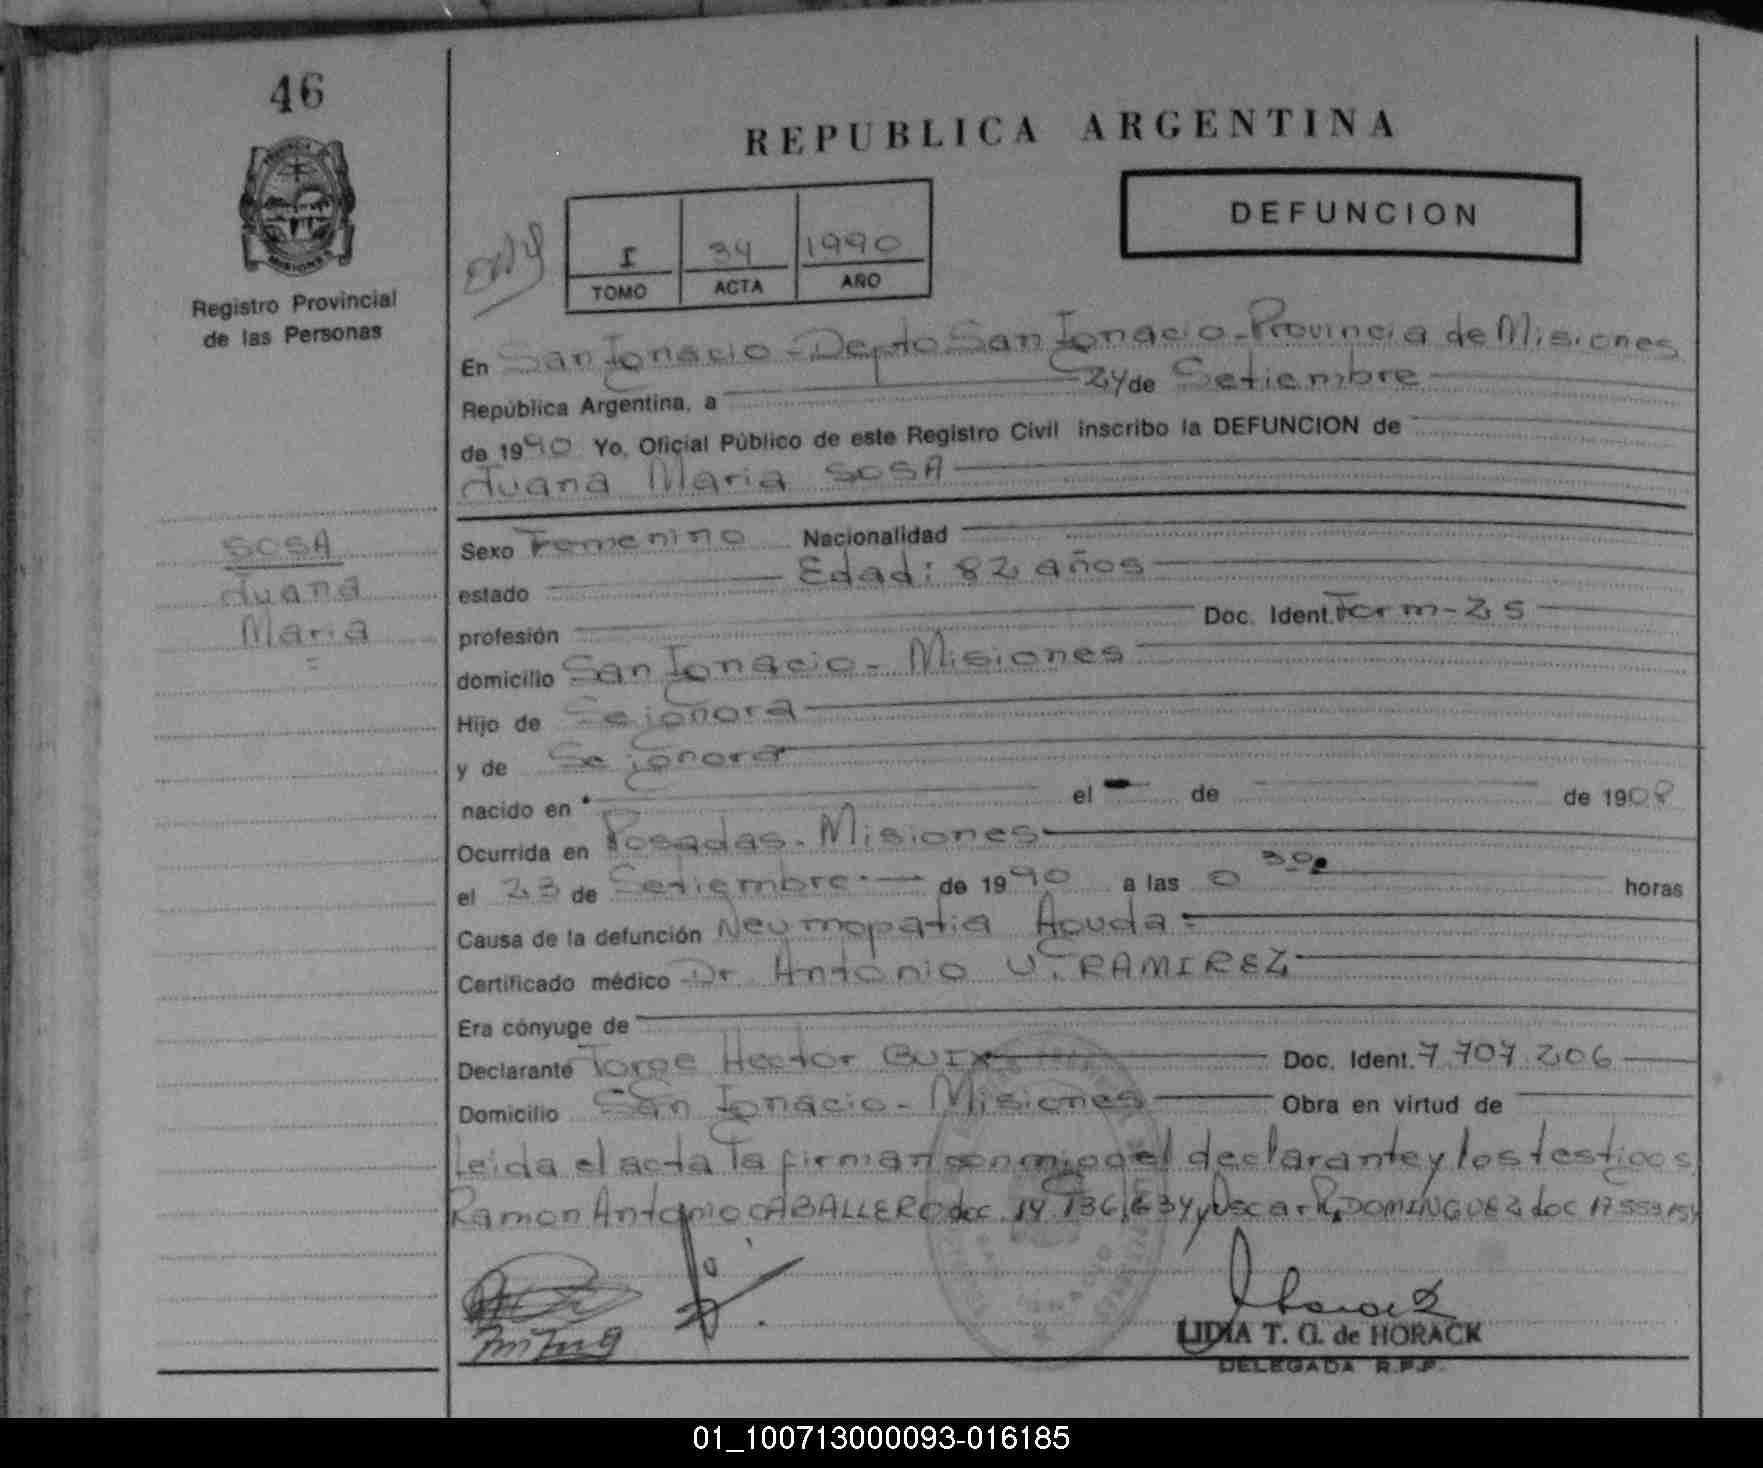 46
REPUBLICA ARGENTINA
DEFUNCION
I 34 1990
TOMO ACTA AÑO
MISIONES
Registro Provincial
de las Personas
En San Ignacio - Depto San Ignacio - Provincia de Misiones
República Argentina, a 24 de Setiembre
de 1990 Yo, Oficial Público de este Registro Civil inscribo la DEFUNCION de
Juana Maria SOSA
SOSA
Juana
Maria
Sexo Femenino Nacionalidad
estado Edad: 82 años
profesión Doc. Ident. Form-25
domicilio San Ignacio - Misiones
Hijo de Se ignora
y de Se ignora
nacido en el - de de 1908
Ocurrida en Posadas - Misiones
el 23 de Setiembre de 1990 a las 0 30 horas
Causa de la defunción Neumopatia Aguda
Certificado médico Dr. Antonio U. RAMIREZ
Era cónyuge de
Declarante Jorge Hector GUIX Doc. Ident. 7.707.206
Domicilio San Ignacio - Misiones Obra en virtud de
Leida el acta la firman conmigo el declarante y los testigos
Ramon Antonio CABALLERO doc. 14.136.634 y Oscar R. DOMINGUEZ doc 17
LIDIA T. G. de HORACK
DELEGADA R.P.P.
01_100713000093-016185